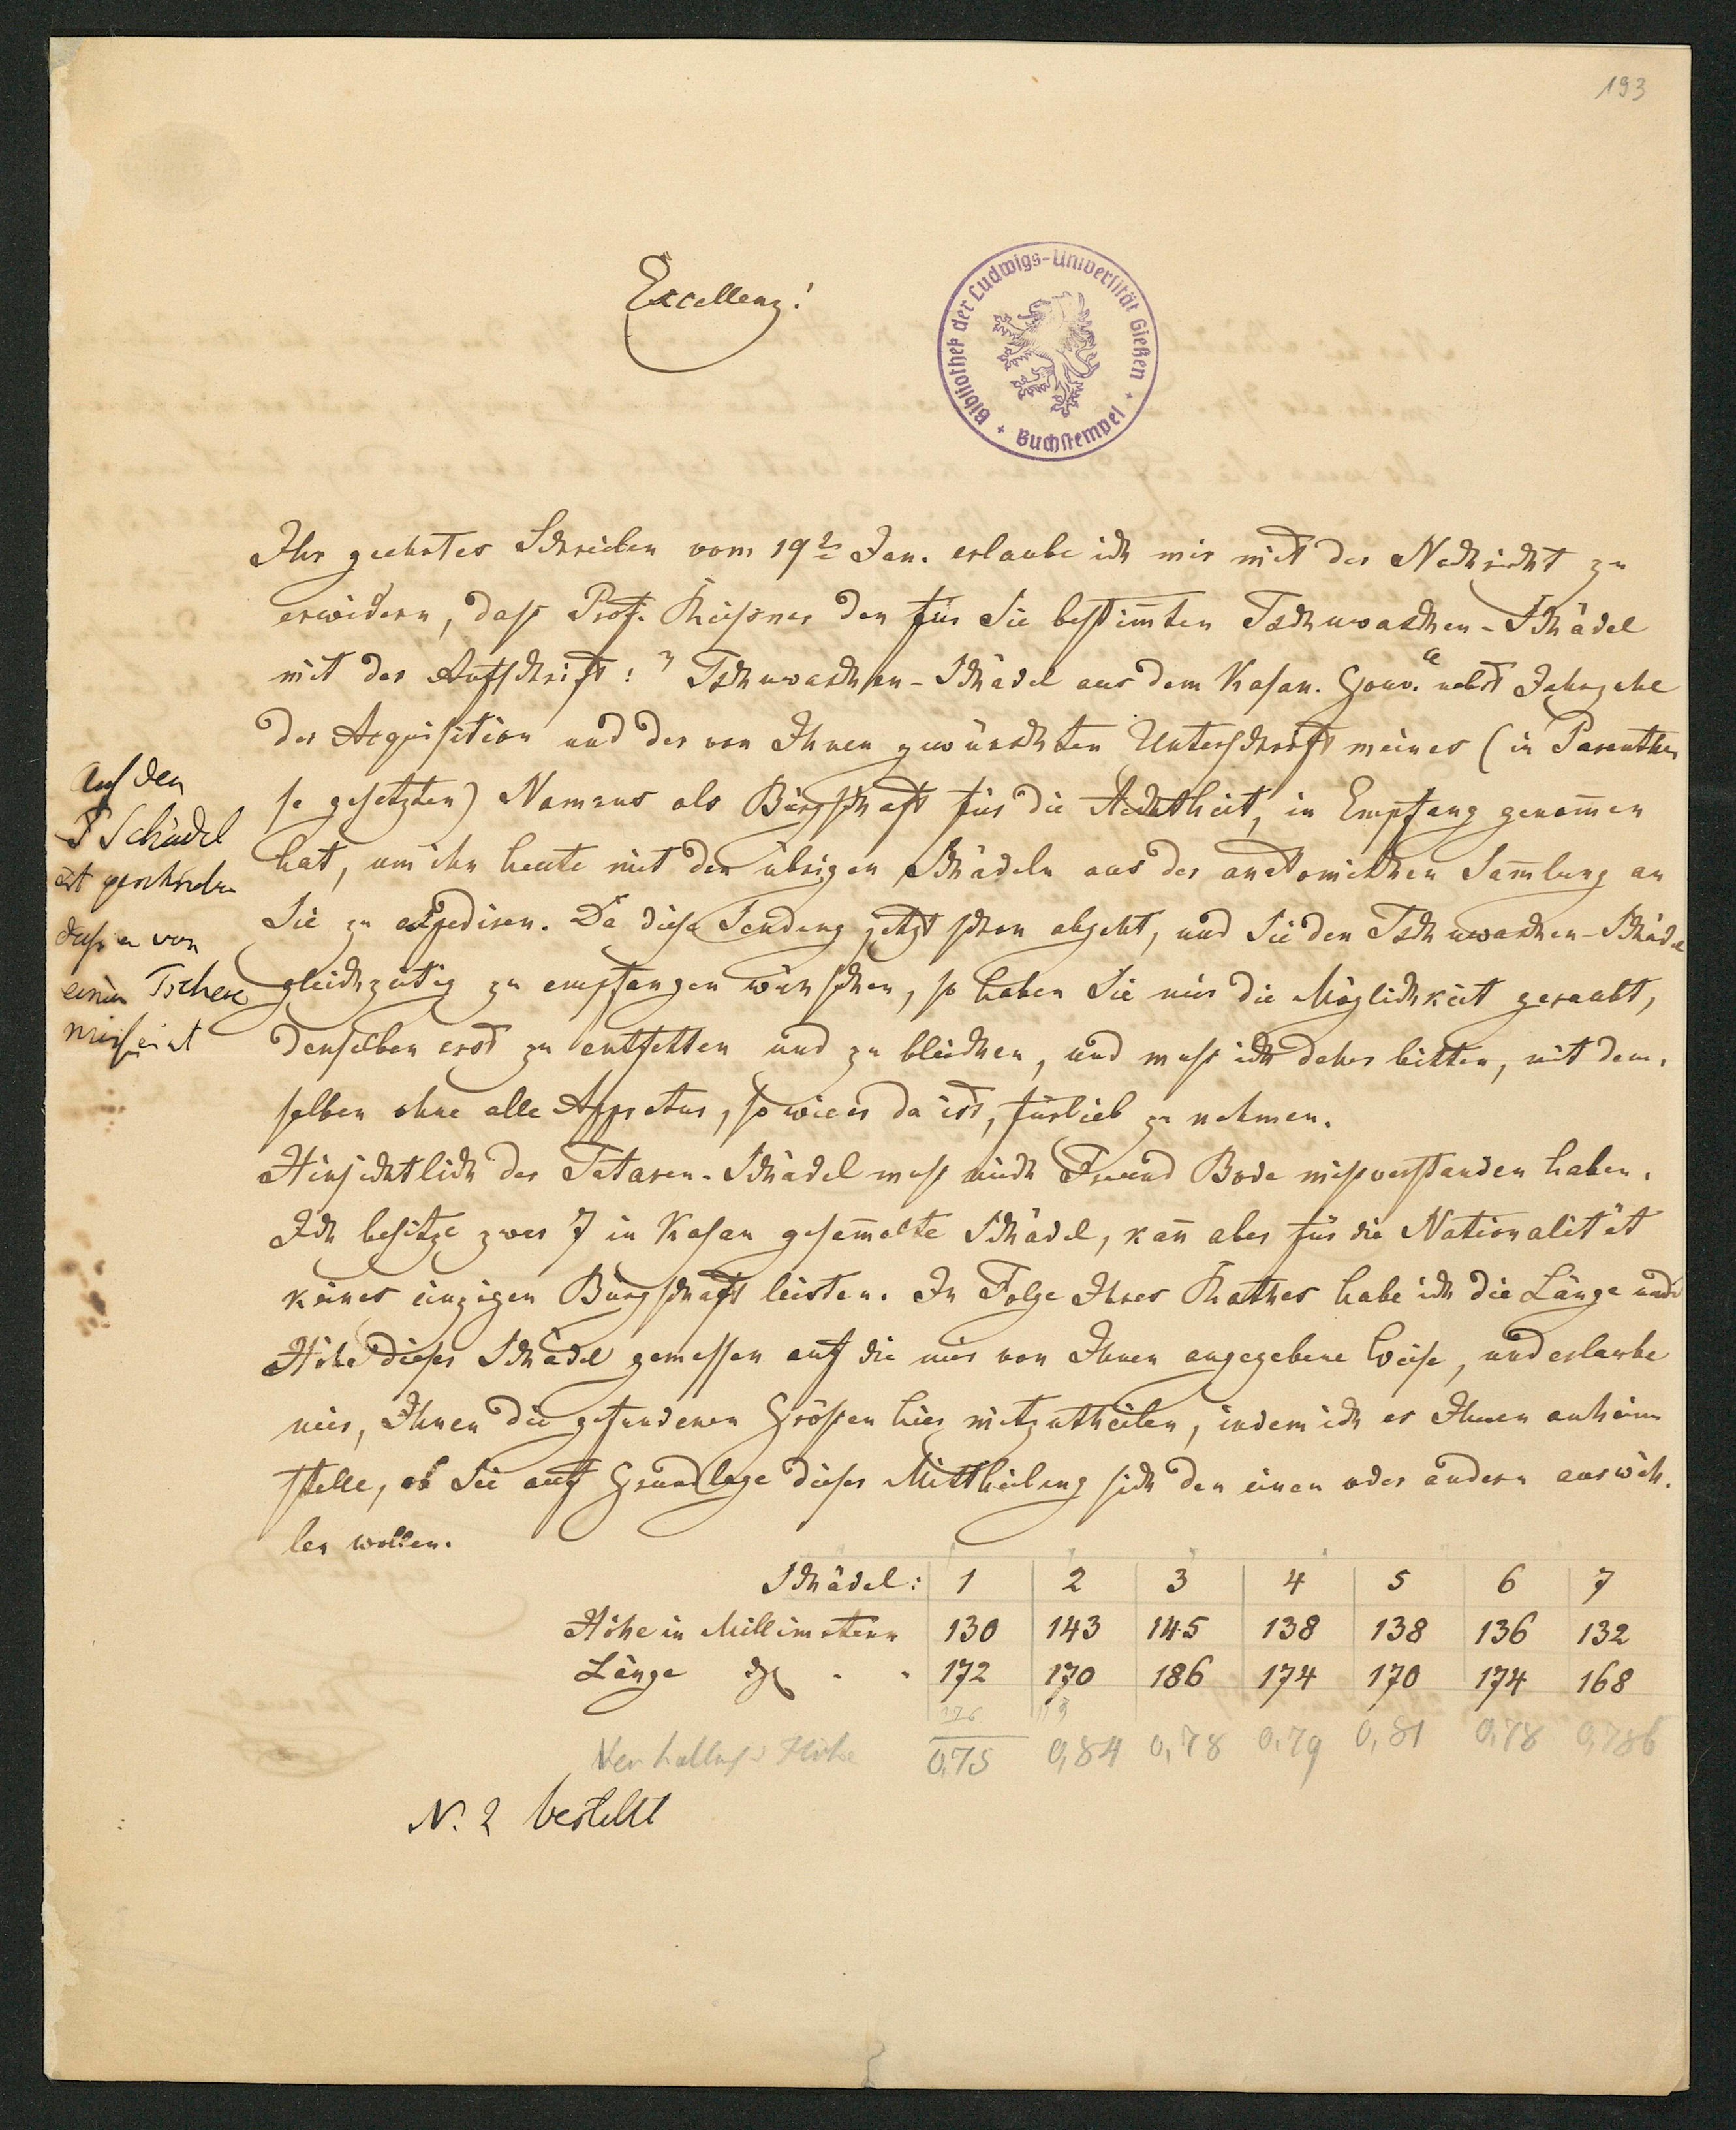 193
Excellenz!
Bibliothek der Ludwigs-Universität Gießen + Buchstempel +
Ihr geehrtes Schreiben vom 19ten Jan. erlaube ich mir mit der Nachricht zu
erwidern, daß Prof. Reissner den für Sie bestim̅ten Tschuwaschen-Schädel
mit der Aufschrift: "Tschuwaschen-Schädel aus dem Kasan. Gouv." nebst Jahrzahl
der Acquisition und der von Ihnen gewünschten Unterschrift meines (in Parenthe
se gesetzten) Namens als Bürgschaft für die Aechtheit, in Empfang genom̅en
hat, um ihn heute mit den übrigen Schädeln aus der anatomischen Sam̅lung an
Sie zu expediren. Da diese Sendung jetzt schon abgeht, und Sie den Tschuwaschen-Schädel
gleichzeitig zu empfangen wünschen, so haben Sie mir die Möglichkeit geraubt,
denselben erst zu entfetten und zu bleichen, und muß ich daher bitten, mit dem-
selben ohne alle Appretur, so wie er da ist, fürlieb zu nehmen.
Auf den
Schädel
ist geschrieben
daß er von
einem Tschere
missen ist
Hinsichtlich der Tataren-Schädel muß mich Freund Bode mißverstanden haben.
Ich besitze zwar 7 in Kasan gesam̅elte Schädel, kan̅ aber für die Nationalität
keines einzigen Bürgschaft leisten. In Folge Ihres Rathes habe ich die Länge und
Höhe dieser Schädel gemessen auf die mir von Ihnen angegebene Weise, und erlaube
mir, Ihnen die gefundenen Größen hier mitzutheilen, indem ich es Ihnen anheim
stelle, ob Sie auf Grundlage dieser Mittheilung sich den einen oder andern auswäh-
len wollen.
Schädel: 1 2 3 4 5 6 7
Höhe in Millimetern 130 143 145 138 138 136 132
Länge " " 172 170 186 174 170 174 168
Höhe 0,75 0,84 0,78 0,79 0,81 0,78 0,786
N. 2 bestellt